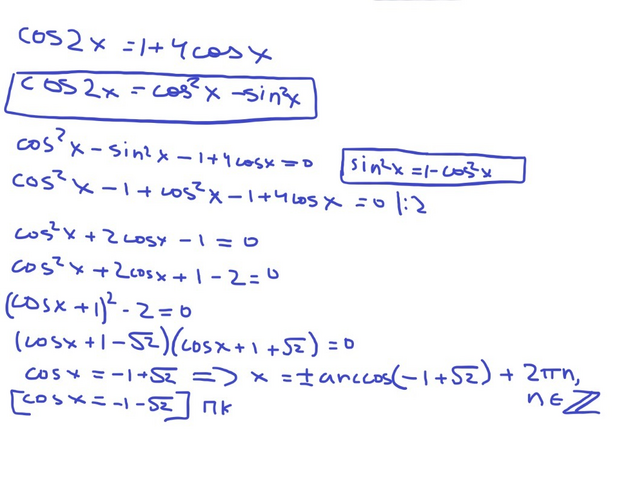 cos2x = 1 + 4cosx
cos2x = cos²x - sin²x
cos²x - sin²x - 1 + 4cosx = 0
sin²x = 1 - cos²x
cos²x - 1 + cos²x - 1 + 4cosx = 0 |:2
cos²x + 2cosx - 1 = 0
cos²x + 2cosx + 1 - 2 = 0
(cosx + 1)² - 2 = 0
(cosx + 1 - √2)(cosx + 1 + √2) = 0
cosx = -1 + √2 => x = ± arccos(-1 + √2) + 2πn,
n ∈ ℤ
[cosx = -1 - √2] пк